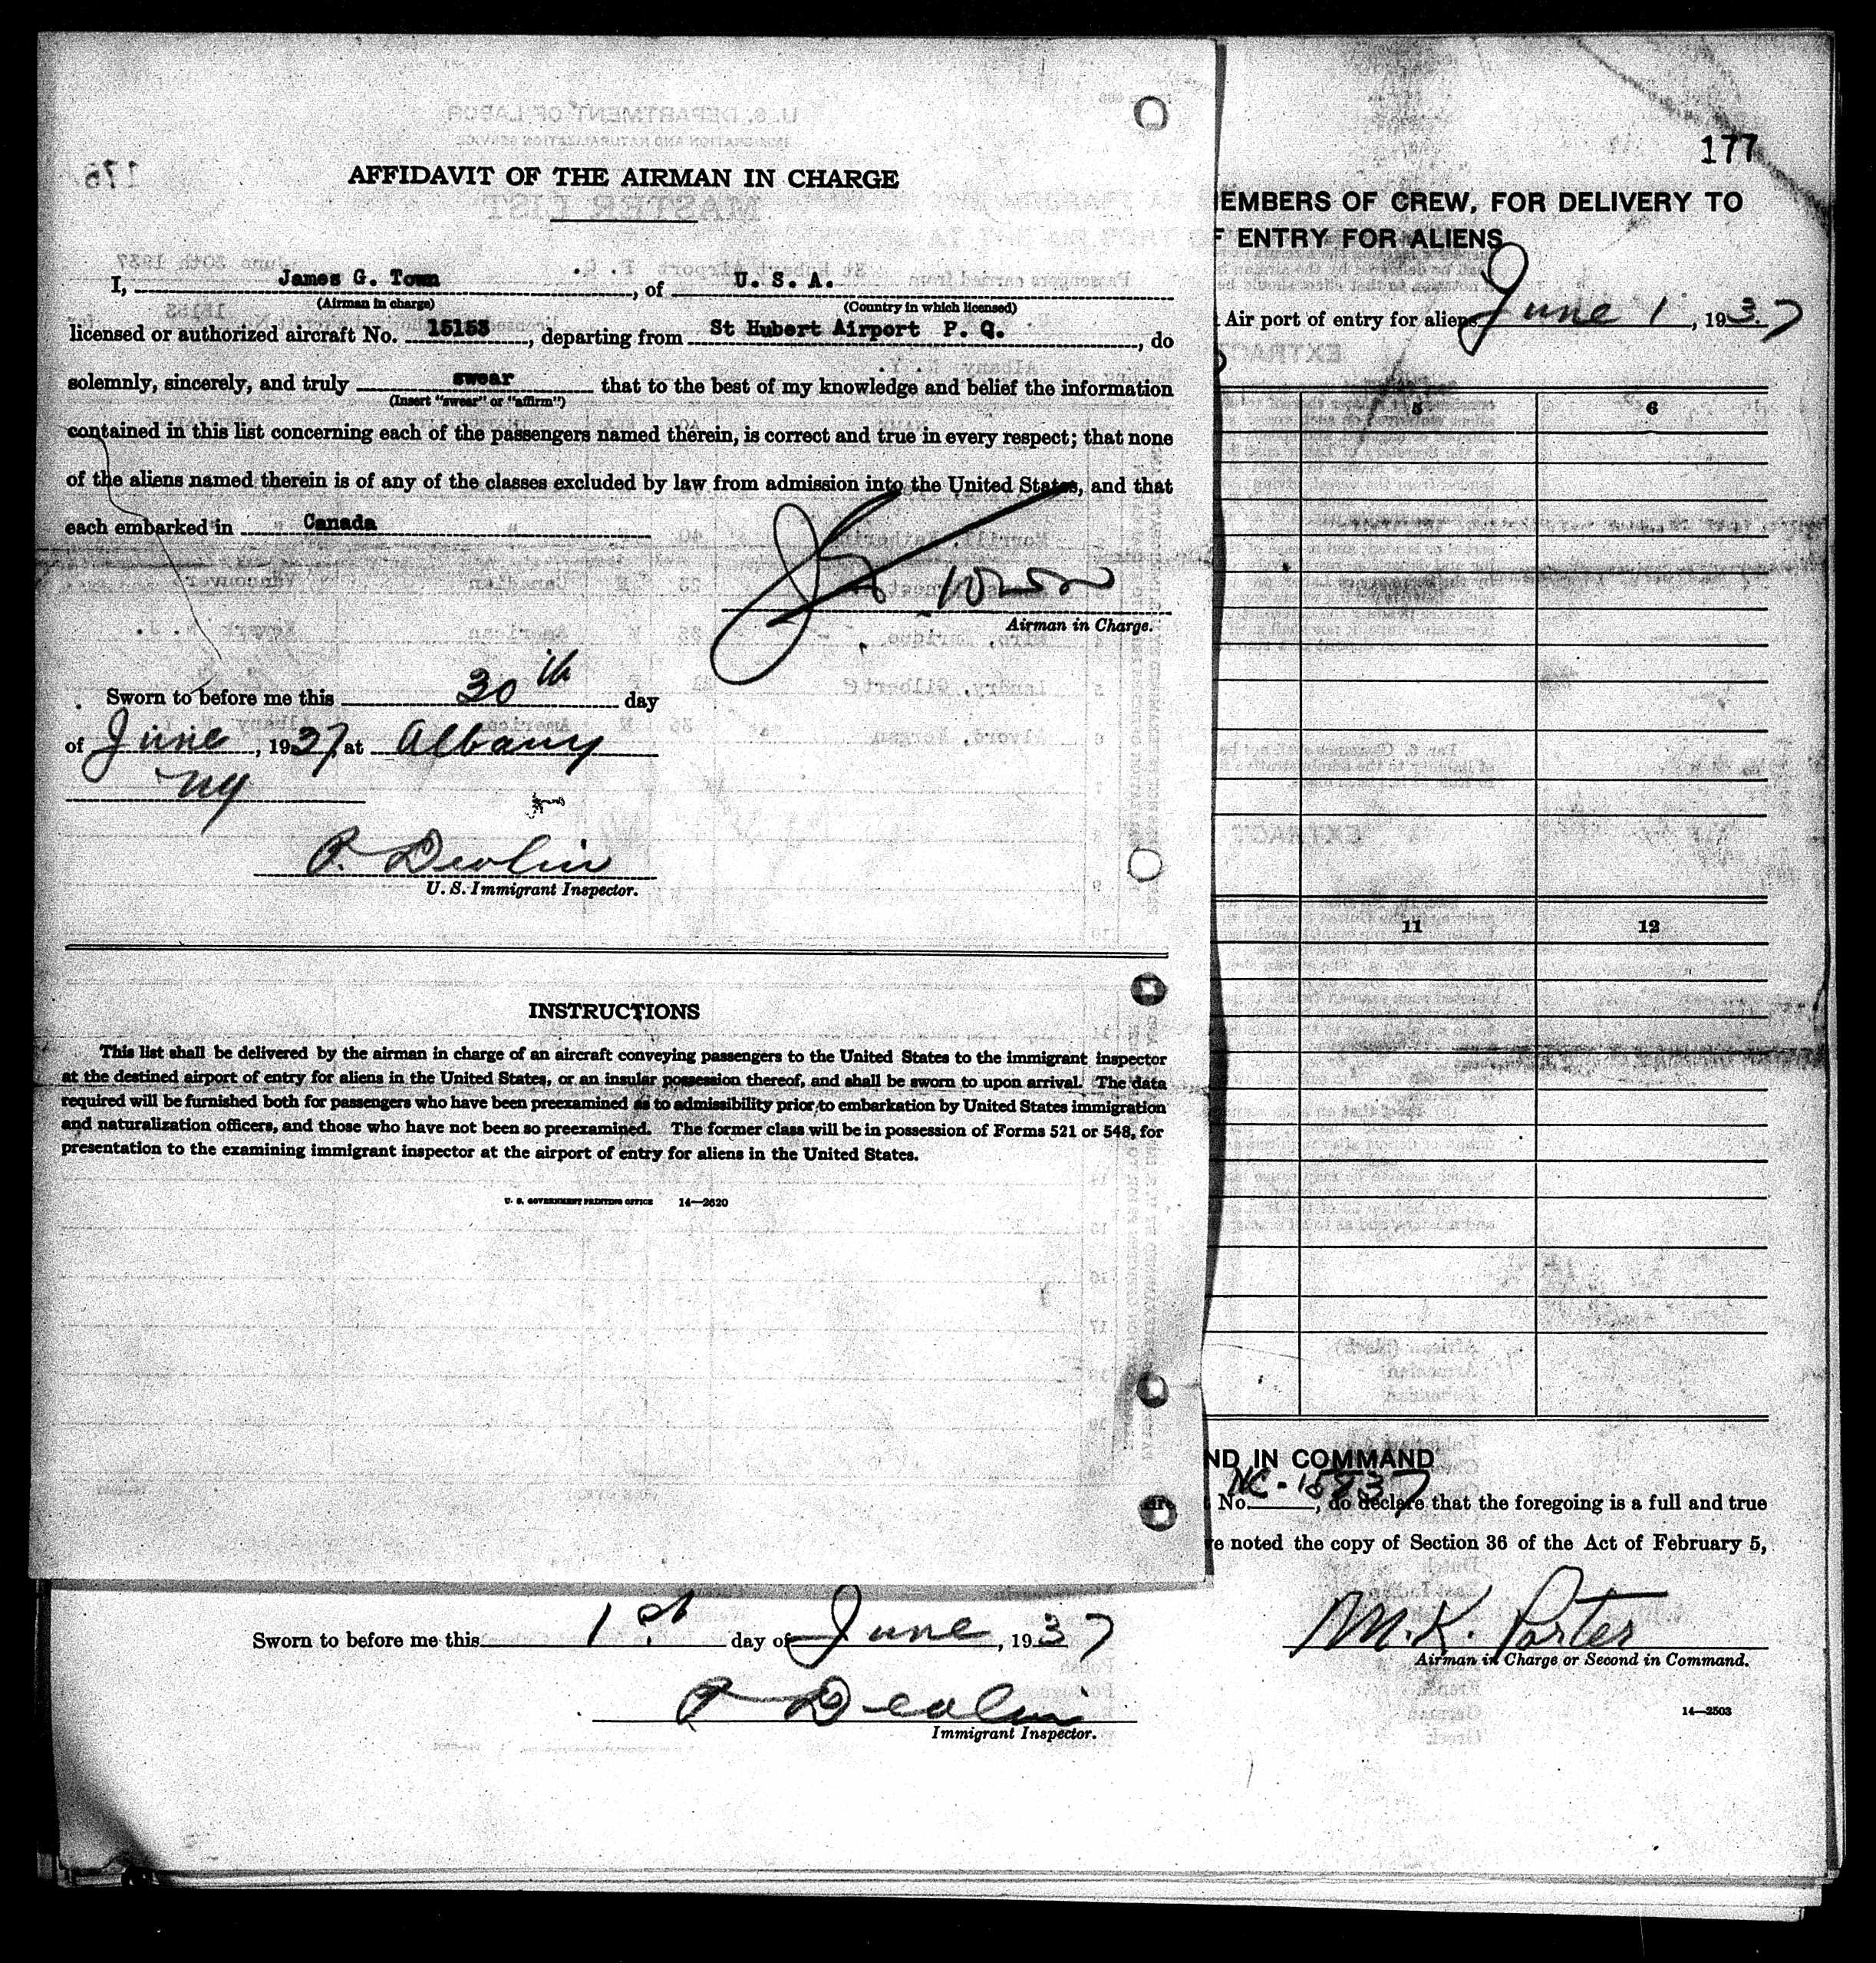 AFFIDAVIT OF THE AIRMAN IN CHARGE
I, James G. Town, of U. S. A.
(Airman in charge) (Country in which licensed)
licensed or authorized aircraft No. 15153, departing from St Hubert Airport P. Q., do
solemnly, sincerely, and truly swear that to the best of my knowledge and belief the information
(Insert "swear" or "affirm")
contained in this list concerning each of the passengers named therein, is correct and true in every respect; that none
of the aliens named therein is of any of the classes excluded by law from admission into the United States, and that
each embarked in Canada
Airman in Charge.
Sworn to before me this 30th day
of June, 1937, at Albany
NY
P. Devlin
U. S. Immigrant Inspector.
INSTRUCTIONS
This list shall be delivered by the airman in charge of an aircraft conveying passengers to the United States to the immigrant inspector
at the destined airport of entry for aliens in the United States, or an insular possession thereof, and shall be sworn to upon arrival. The data
required will be furnished both for passengers who have been preexamined as to admissibility prior to embarkation by United States immigration
and naturalization officers, and those who have not been so preexamined. The former class will be in possession of Forms 521 or 548, for
presentation to the examining immigrant inspector at the airport of entry for aliens in the United States.
U. S. GOVERNMENT PRINTING OFFICE 14—2620
177
EMBERS OF CREW, FOR DELIVERY TO
F ENTRY FOR ALIENS
Air port of entry for aliens June 1, 1937
5 6
11 12
ND IN COMMAND
No. NC-15837, do declare that the foregoing is a full and true
e noted the copy of Section 36 of the Act of February 5,
Sworn to before me this 1st day of June, 1937
M. K. Porter
Airman in Charge or Second in Command.
P Devlin
Immigrant Inspector.
14—2503